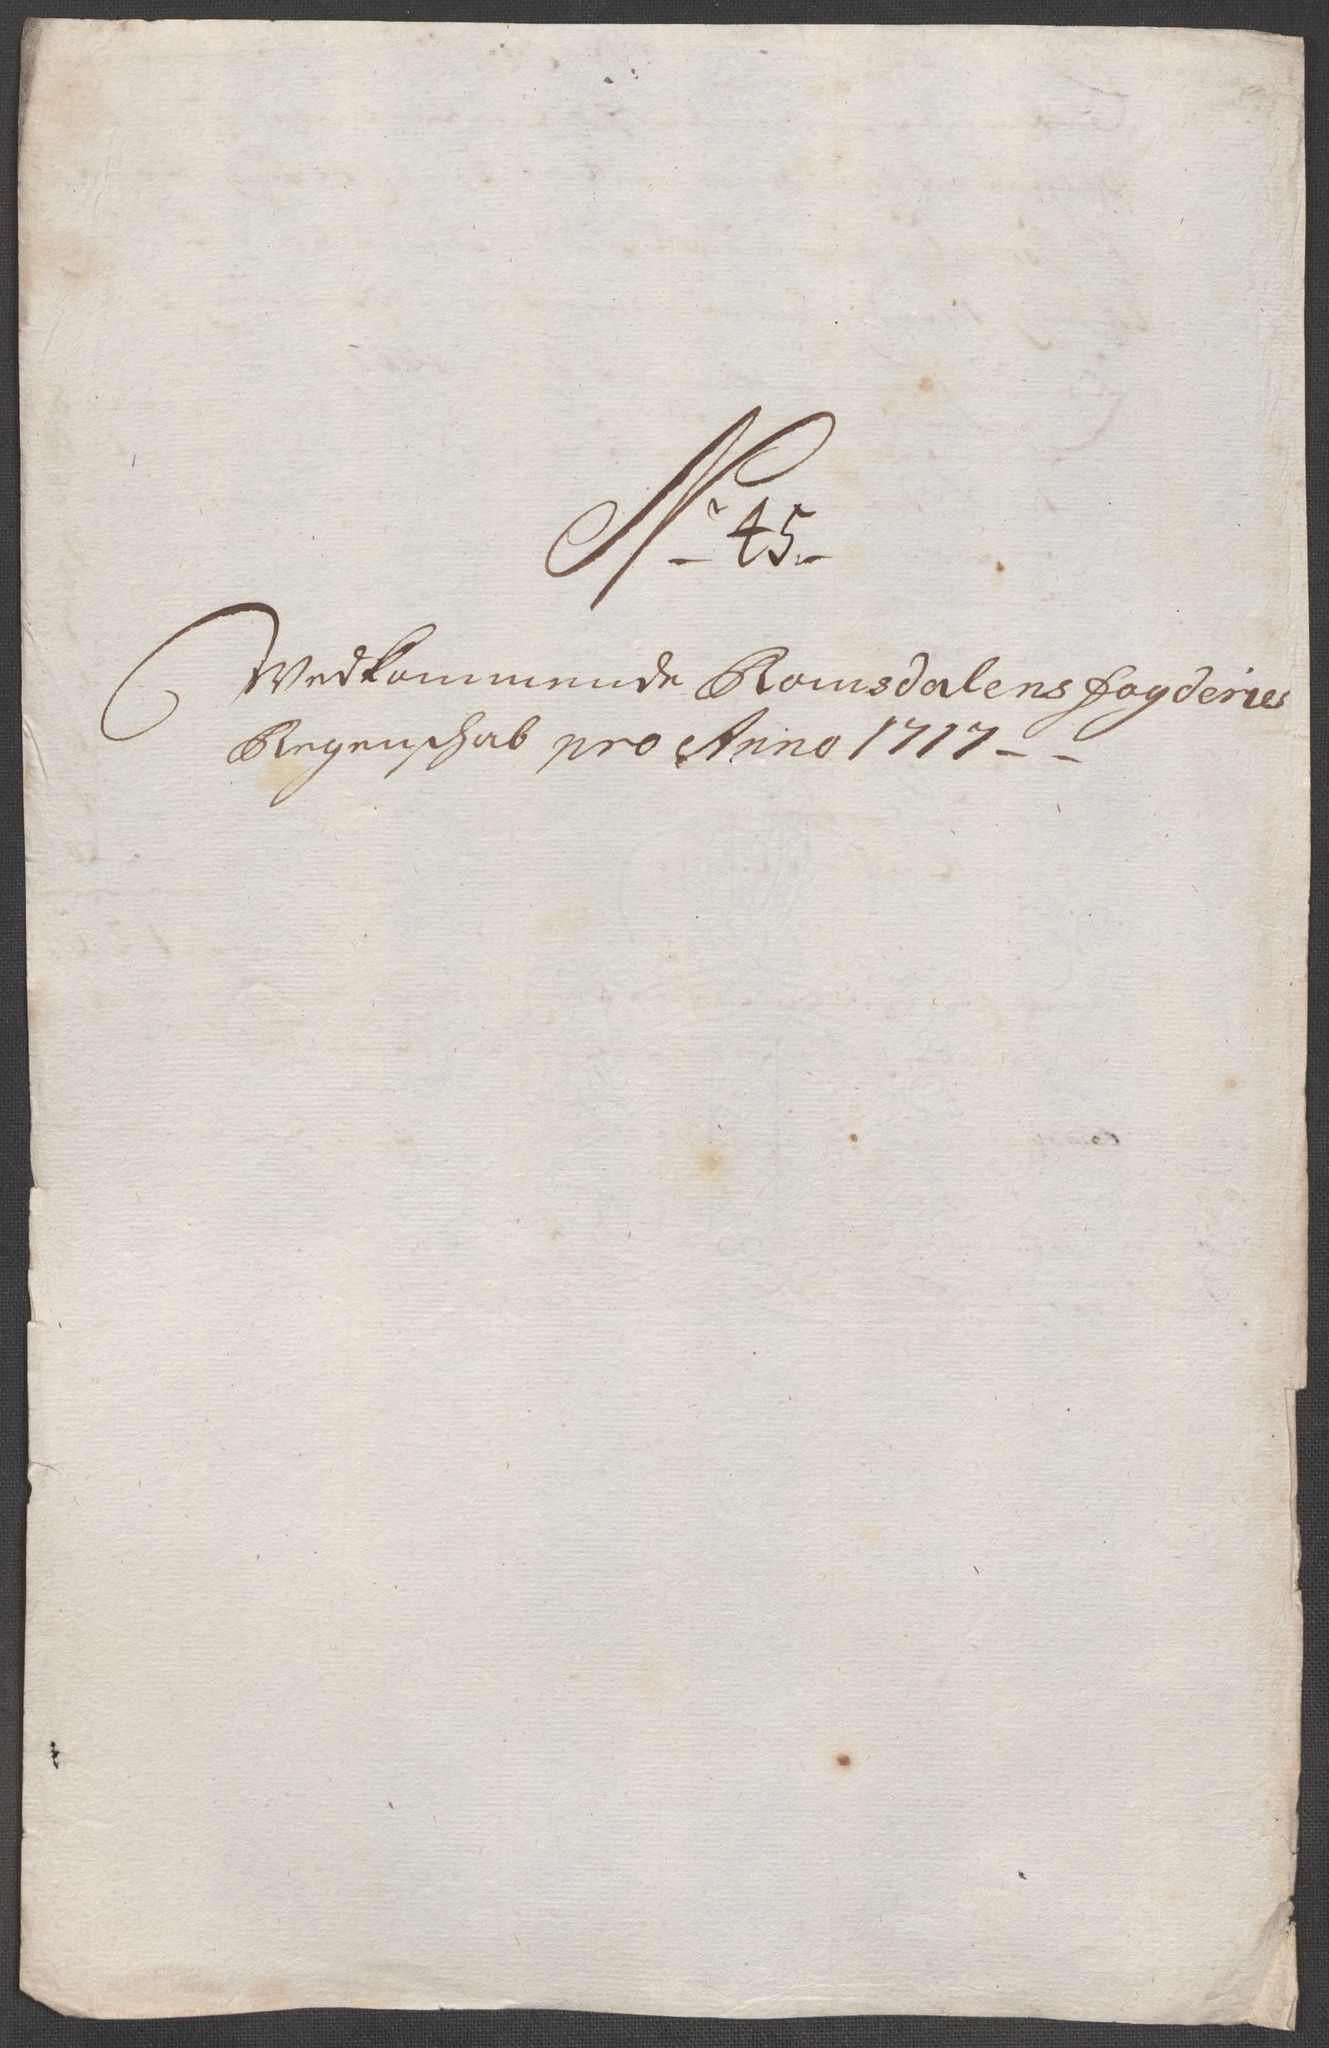 Nr 45
Wedkommende Romsdalens fogderies
Regenschab pro Anno 1717